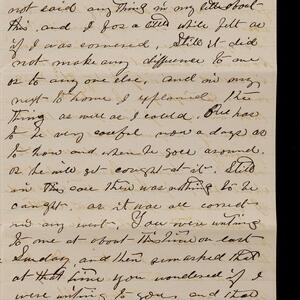 not said anything in my letter about
this. and I for a little while felt as
if I was cornered. Still it did
not make any difference to me
or to any one else, and in my
next to home I explained the
thing as well as I could. One has
to be very careful now a days as
to how and when he goes around.
or he will get caught at it. Still
in this case there was nothing to be
caught as it was all correct
in any event. You were writing
to me at about this time on last
Sunday, and then remarked that
at that time you wondered if I
were writing to you, and that